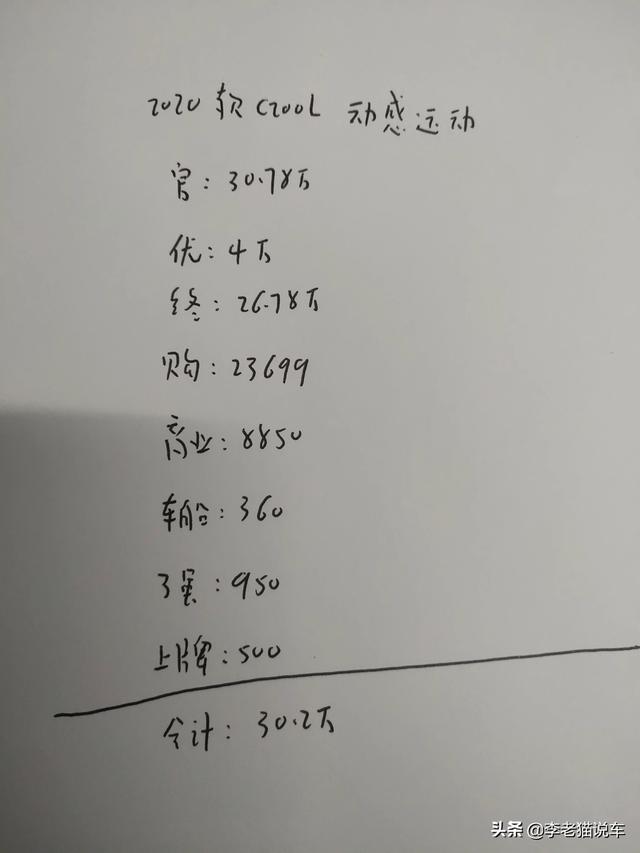 2020款C200L 动感运动
官：30.78万
优：4万
终：26.78万
购：23699
商业：8850
车船：360
了蛋：950
上牌：500
合计：30.2万
头条 @李老猫说车